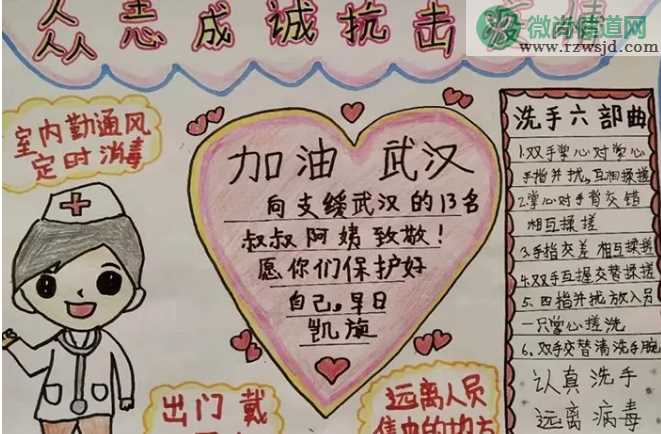 众志成诚抗击疫情
微尚健道网
www.rzwsjd.com
室内勤通风
定时消毒
加油 武汉
向支缓武汉的13名
叔叔阿姨致敬!
愿你们保护好
自己。早日
凯旋
洗手六部曲
1.双手掌心对掌心
手指并扰,互相揉搓
2.掌心对手背交错
相互揉搓
3.手指交差 相互揉搓
4.双手互握交替揉搓
5.四指并扰放入员
一只掌心搓洗
6.双手交替清洗手腕
认真洗手
远离病毒
出门戴
远离人员